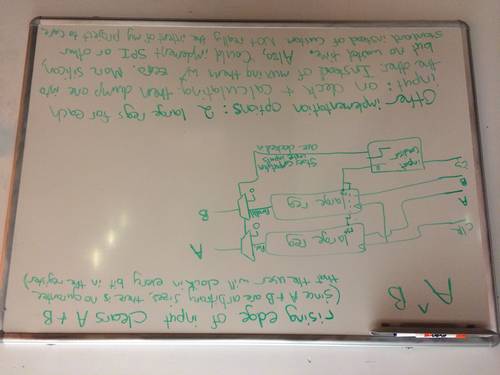 rising edge of input clears A + B
(since A + B are arbitrary sizes, there is no guarantee
that the user will clock in every bit in the register)
A^B
Clk
A
B
CS
large reg
large reg
input
control
A
B
0
0
Start computation
once inputs
are clocked in
Other implementation options: 2 large regs for each
input: on clock + calculating. then dump one into
the other. Instead of muxing them w/ zero. More silicon,
but no wasted time. Also, could implement SPI or other
standard instead of custom. Not really the intent of my project to care